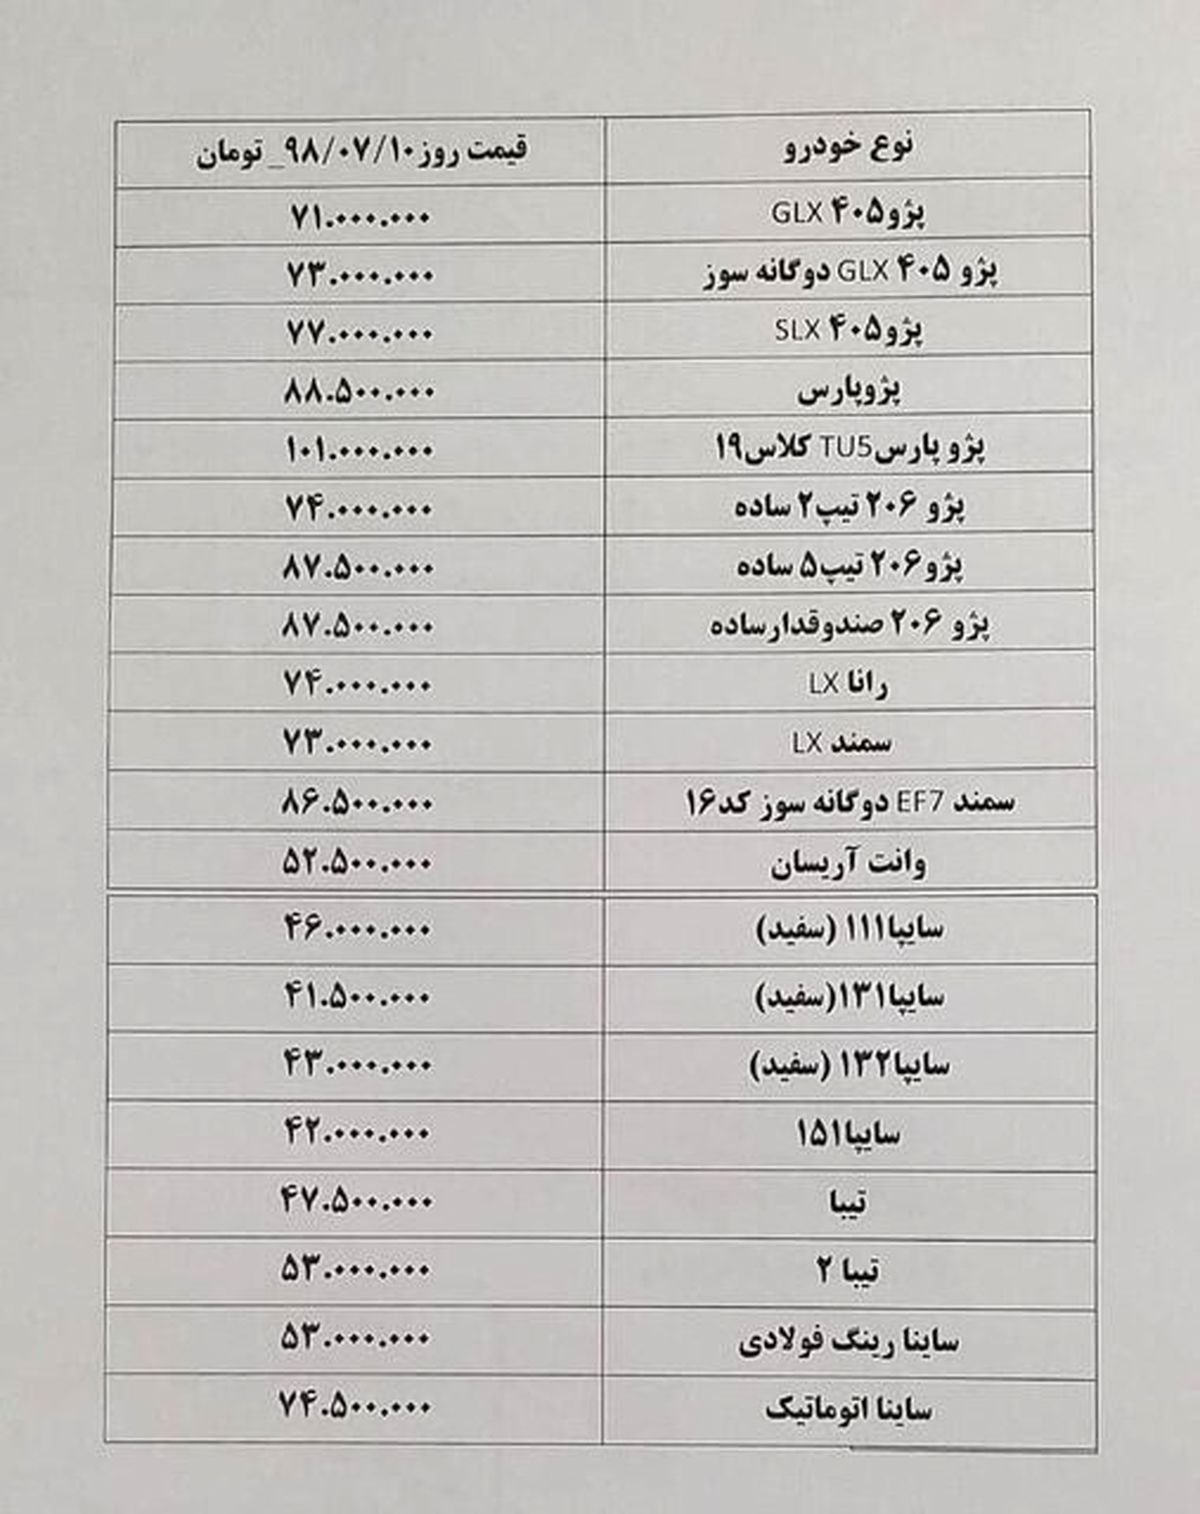 نوع خودرو قیمت روز۹۸/۰۷/۱۰_ تومان
پژو۴۰۵ GLX ۷۱.۰۰۰.۰۰۰
پژو ۴۰۵ GLX دوگانه سوز ۷۳.۰۰۰.۰۰۰
پژو۴۰۵ SLX ۷۷.۰۰۰.۰۰۰
پژوپارس ۸۸.۵۰۰.۰۰۰
پژو پارسTU5 کلاس۱۹ ۱۰۱.۰۰۰.۰۰۰
پژو ۲۰۶ تیپ۲ ساده ۷۴.۰۰۰.۰۰۰
پژو۲۰۶ تیپ۵ ساده ۸۷.۵۰۰.۰۰۰
پژو ۲۰۶ صندوقدارساده ۸۷.۵۰۰.۰۰۰
رانا LX ۷۴.۰۰۰.۰۰۰
سمند LX ۷۳.۰۰۰.۰۰۰
سمند EF7 دوگانه سوز کد۱۶ ۸۶.۵۰۰.۰۰۰
وانت آریسان ۵۲.۵۰۰.۰۰۰
سایپا۱۱۱ (سفید) ۴۶.۰۰۰.۰۰۰
سایپا۱۳۱(سفید) ۴۱.۵۰۰.۰۰۰
سایپا۱۳۲ (سفید) ۴۳.۰۰۰.۰۰۰
سایپا۱۵۱ ۴۲.۰۰۰.۰۰۰
تیبا ۴۷.۵۰۰.۰۰۰
تیبا ۲ ۵۳.۰۰۰.۰۰۰
ساینا رینگ فولادی ۵۳.۰۰۰.۰۰۰
ساینا اتوماتیک ۷۴.۵۰۰.۰۰۰